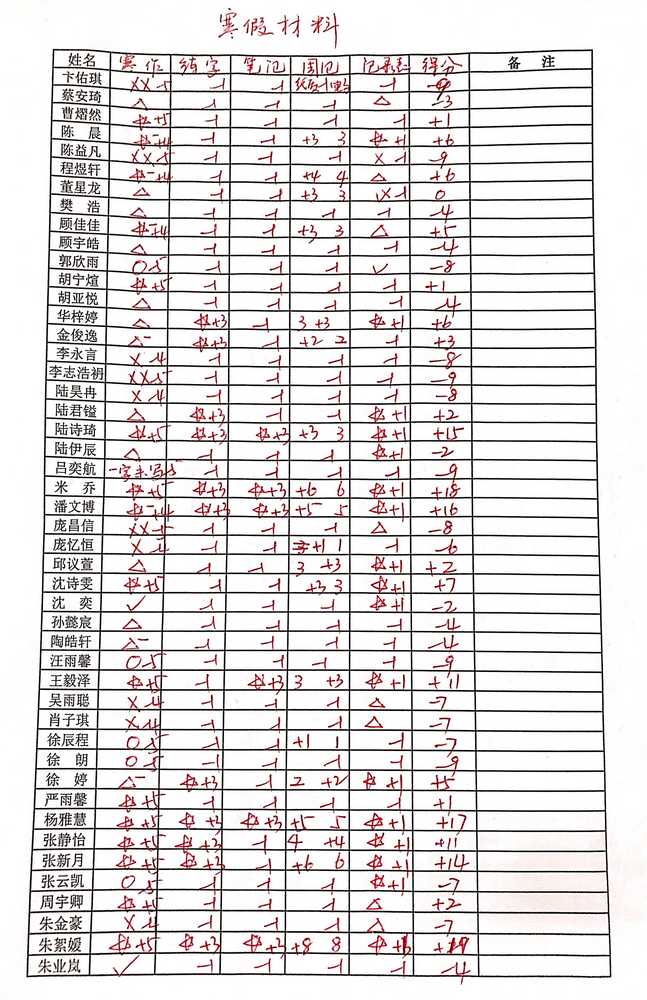 寒假材料
姓名 寒作 练字 笔记 周记 记录志 得分 备注
卞佑琪 XX -5 -1 -1 -1 -1 -9
蔡安琦 △ -1 -1 -1 △ -3
曹熠然 ☆+5 -1 -1 -1 -1 +1
陈晨 ☆-+4 -1 -1 +3 3 ☆+1 +6
陈益凡 XX -5 -1 -1 -1 X -1 -9
程煜轩 ☆-+4 -1 -1 +4 4 △ +6
董星龙 △ -1 -1 +3 3 -1 0
樊浩 △ -1 -1 -1 -1 -4
顾佳佳 ☆-+4 -1 -1 +3 3 △ +5
顾宇皓 △ -1 -1 -1 -1 -4
郭欣雨 O -5 -1 -1 -1 ✓ -8
胡宁煊 ☆+5 -1 -1 -1 -1 +1
胡亚悦 △ -1 -1 -1 -1 -4
华梓婷 △ ☆+3 -1 3 +3 ☆+1 +6
金俊逸 △- ☆+3 -1 +2 2 -1 +3
李永言 X -4 -1 -1 -1 -1 -8
李志浩礽 XX -5 -1 -1 -1 -1 -9
陆昊冉 X -4 -1 -1 -1 -1 -8
陆君镒 △ ☆+3 -1 -1 ☆+1 +2
陆诗琦 ☆+5 ☆+3 ☆+3 +3 3 ☆+1 +15
陆伊辰 △ -1 -1 -1 ☆+1 -2
吕奕航 一字未写-5 -1 -1 -1 -1 -9
米乔 ☆+5 ☆+3 ☆+3 +6 6 ☆+1 +18
潘文博 ☆-+4 ☆+3 ☆+3 +5 5 ☆+1 +16
庞昌信 XX -5 -1 -1 -1 △ -8
庞忆恒 X -4 -1 -1 +1 1 -1 -6
邱议萱 △ -1 -1 3 +3 ☆+1 +2
沈诗雯 ☆+5 -1 -1 +3 3 ☆+1 +7
沈奕 ✓ -1 -1 -1 ☆+1 -2
孙懿宸 △ -1 -1 -1 -1 -4
陶皓轩 △- -1 -1 -1 -1 -4
汪雨馨 O -5 -1 -1 -1 -1 -9
王毅泽 ☆+5 -1 ☆+3 3 +3 ☆+1 +11
吴雨聪 X -4 -1 -1 -1 △ -7
肖子琪 X -4 -1 -1 -1 △ -7
徐辰程 O -5 -1 -1 +1 1 -1 -7
徐朗 O -5 -1 -1 -1 -1 -9
徐婷 △- ☆+3 -1 2 +2 ☆+1 +5
严雨馨 ☆+5 -1 -1 -1 -1 +1
杨雅慧 ☆+5 ☆+3 ☆+3 +5 5 ☆+1 +17
张静怡 ☆+5 ☆+3 -1 4 +4 ☆+1 +11
张新月 ☆+5 ☆+3 -1 +6 6 ☆+1 +14
张云凯 O -5 -1 -1 -1 ☆+1 -7
周宇卿 ☆+5 -1 -1 -1 △ +2
朱金豪 X -4 -1 -1 -1 △ -7
朱絮媛 ☆+5 ☆+3 ☆+3 +8 8 +19
朱业岚 ✓ -1 -1 -1 -1 -4